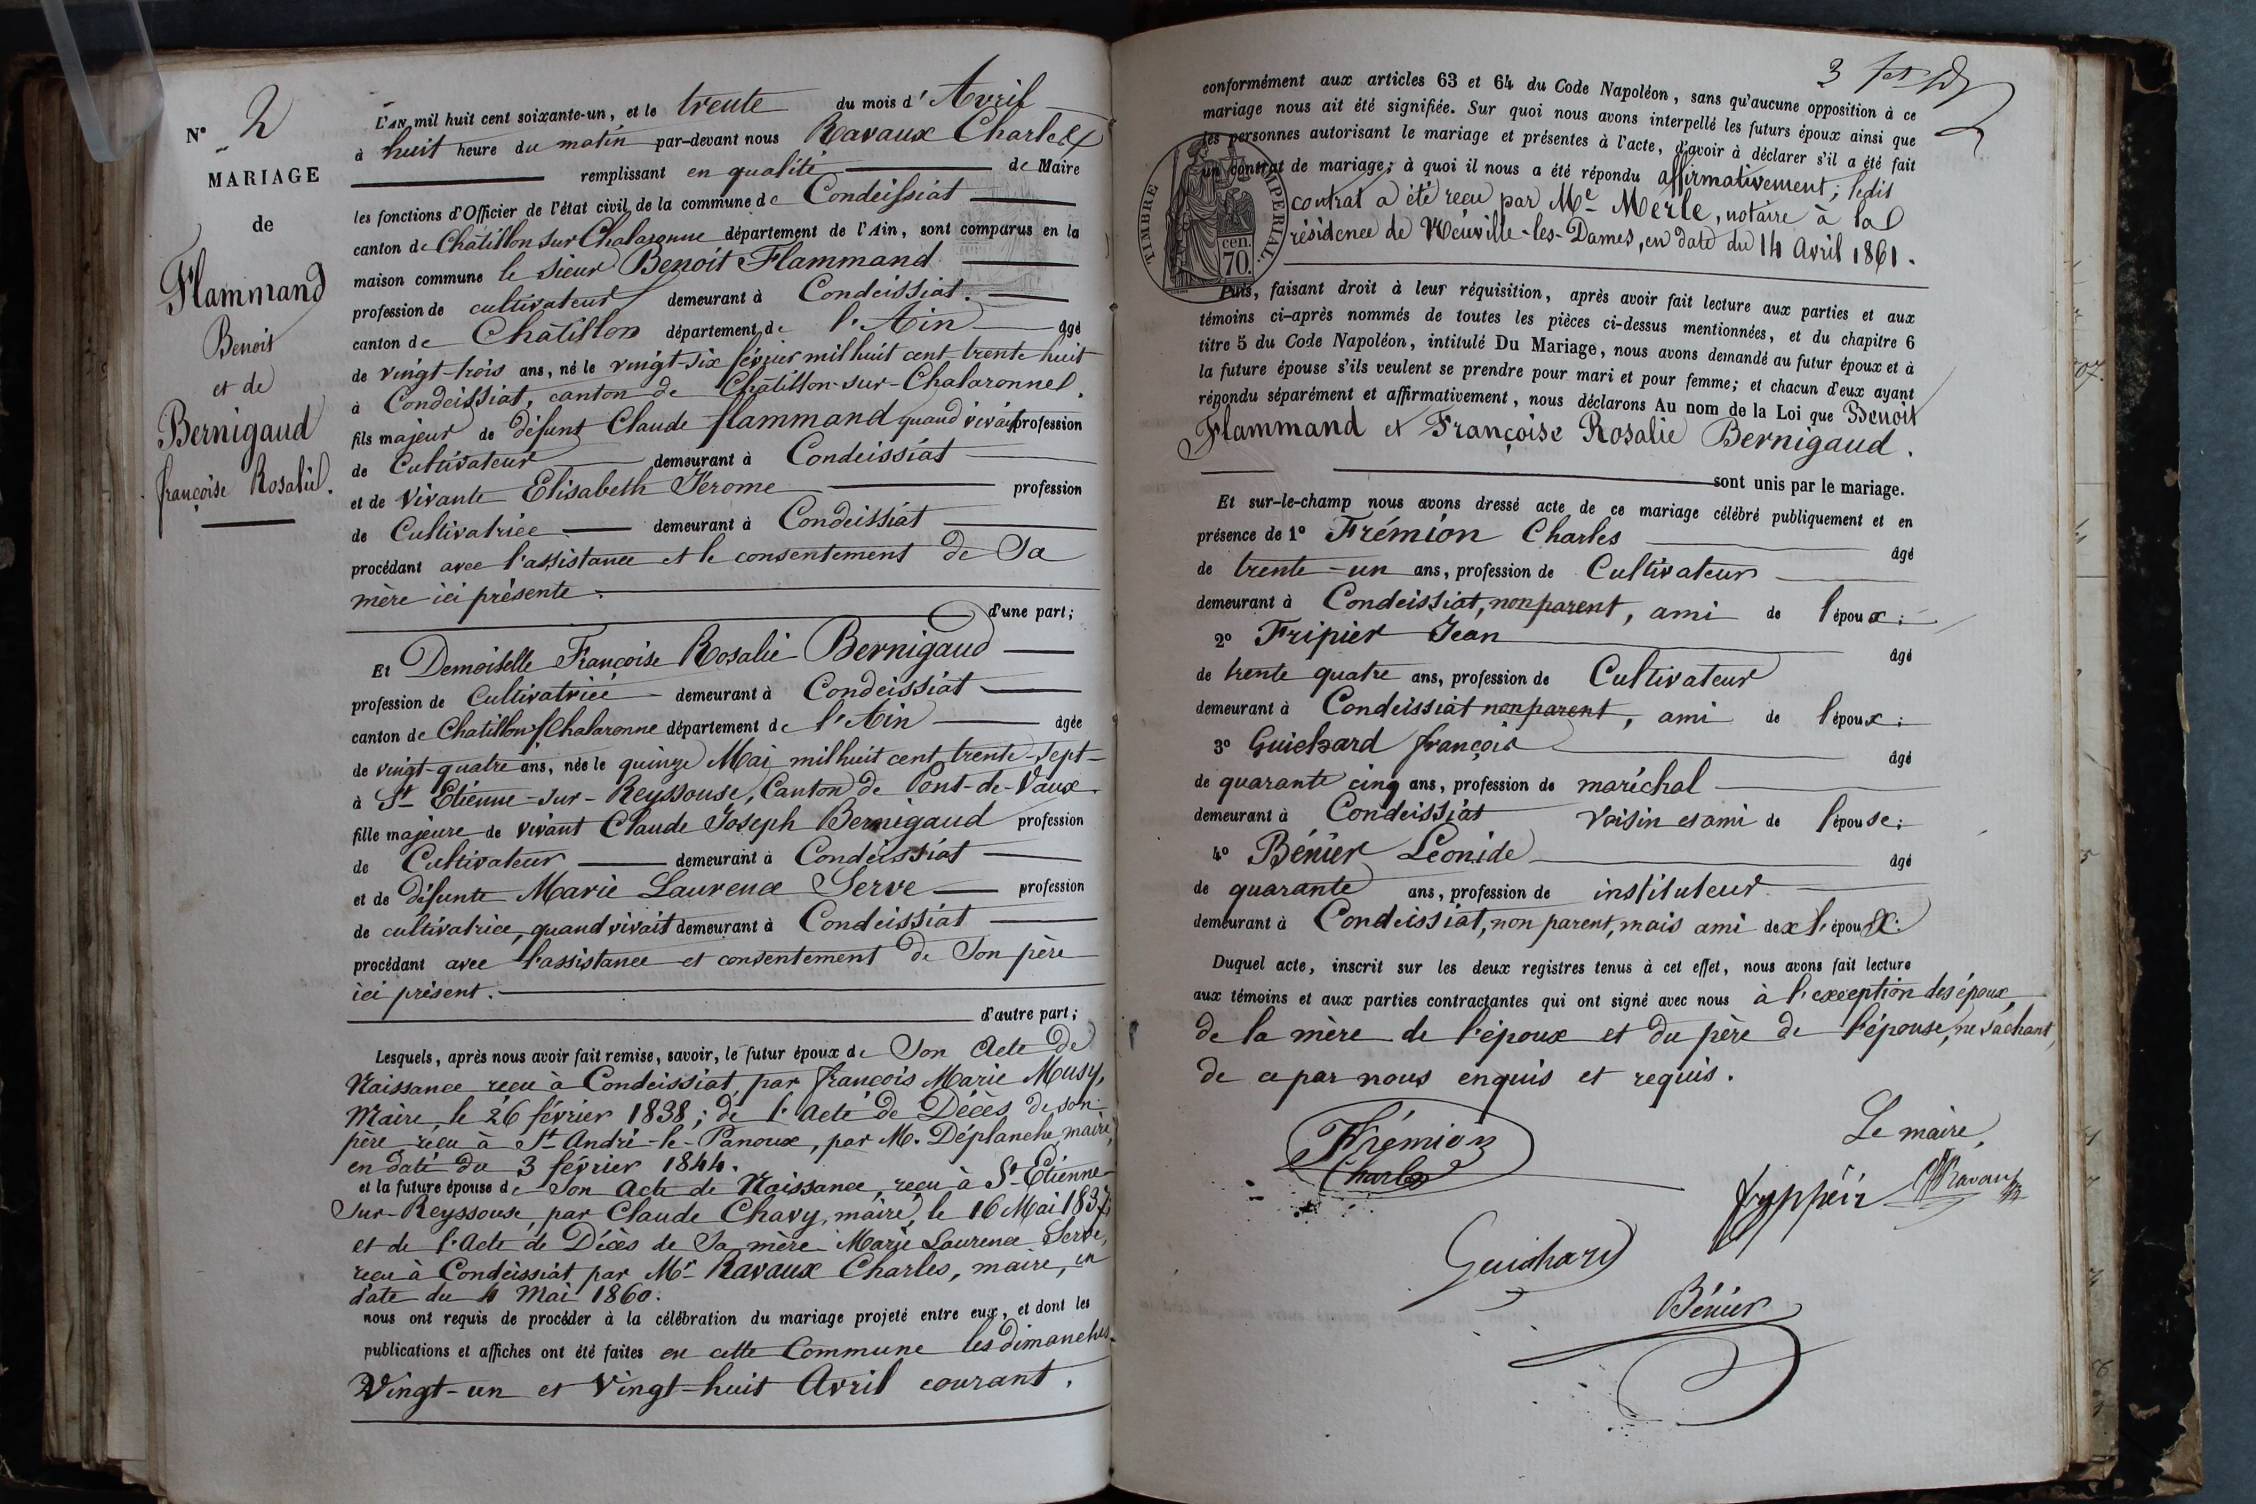 N° 2
MARIAGE
de
Flammand
Benoit
et de
Bernigaud
françoise Rosalie.
L'AN mil huit cent soixante-un, et le trente du mois d'Avril
à huit heure du matin par-devant nous Ravaux Charles
remplissant en qualité de Maire
les fonctions d'Officier de l'état civil de la commune de Condeissiat
canton de Châtillon sur Chalaronne département de l'Ain, sont comparus en la
maison commune le sieur Benoit Flammand
profession de cultivateur demeurant à Condeissiat.
canton de Châtillon département de l'Ain âgé
de vingt-trois ans, né le vingt-six février mil huit cent trente huit
à Condeissiat, canton de Châtillon-sur-Chalaronne.
fils majeur de défunt Claude flammand quand vivait profession
de Cultivateur demeurant à Condeissiat
et de vivante Elisabeth Jérome profession
de Cultivatrice demeurant à Condeissiat
procédant avec l'assistance et le consentement de Sa
mère ici présente.
d'une part;
Et Demoiselle Françoise Rosalie Bernigaud
profession de Cultivatrice demeurant à Condeissiat
canton de Chatillon s/Chalaronne département de l'Ain âgée
de vingt-quatre ans, née le quinze Mai mil huit cent trente-sept
à St Etienne-sur-Reyssouse, Canton de Pont-de-Vaux.
fille majeure de vivant Claude Joseph Bernigaud profession
de Cultivateur demeurant à Condeissiat
et de défunte Marie Laurence Serve profession
de cultivatrice, quand vivait demeurant à Condeissiat
procédant avec l'assistance et consentement de Son père
ici présent.
d'autre part;
Lesquels, après nous avoir fait remise, savoir, le futur époux de Son Acte de
Naissance reçu à Condeissiat, par françois Marie Musy,
Maire, le 26 février 1838; de l'acte de Décès de son
père reçu à St André-le-Panoux, par M. Déplanche, maire,
en daté du 3 février 1844.
et la future épouse de Son Acte de Naissance, reçu à St Etienne-
Sur-Reyssouse, par Claude Chavy, maire, le 16 Mai 1837,
et de l'Acte de Décès de Sa mère Marie Laurence Serve,
reçu à Condeissiat par Mr Ravaux Charles, maire, en
date du 4 Mai 1860.
nous ont requis de procéder à la célébration du mariage projeté entre eux, et dont les
publications et affiches ont été faites en cette Commune les dimanches
Vingt-un et Vingt-huit Avril courant.
3
conformément aux articles 63 et 64 du Code Napoléon, sans qu'aucune opposition à ce
mariage nous ait été signifiée. Sur quoi nous avons interpellé les futurs époux ainsi que
les personnes autorisant le mariage et présentes à l'acte, d'avoir à déclarer s'il a été fait
un contrat de mariage; à quoi il nous a été répondu affirmativement; ledit
contrat a été reçu par Me Merle, notaire à la
résidence de Neuville-les-Dames, en date du 14 Avril 1861.
TIMBRE IMPERIAL.
cen.
70.
Puis, faisant droit à leur réquisition, après avoir fait lecture aux parties et aux
témoins ci-après nommés de toutes les pièces ci-dessus mentionnées, et du chapitre 6
titre 5 du Code Napoléon, intitulé Du Mariage, nous avons demandé au futur époux et à
la future épouse s'ils veulent se prendre pour mari et pour femme; et chacun d'eux ayant
répondu séparément et affirmativement, nous déclarons Au nom de la Loi que Benoit
Flammand et Françoise Rosalie Bernigaud.
sont unis par le mariage.
Et sur-le-champ nous avons dressé acte de ce mariage célébré publiquement et en
présence de 1° Frémion Charles âgé
de trente-un ans, profession de Cultivateur
demeurant à Condeissiat, non parent, ami de l'époux;
2° Fripier Jean âgé
de trente quatre ans, profession de Cultivateur
demeurant à Condeissiat non parent, ami de l'époux;
3° Guichard françois âgé
de quarante cinq ans, profession de maréchal
demeurant à Condeissiat voisin et ami de l'épouse;
4° Bénier Léonide âgé
de quarante ans, profession de instituteur
demeurant à Condeissiat, non parent, mais ami de l'époux.
Duquel acte, inscrit sur les deux registres tenus à cet effet, nous avons fait lecture
aux témoins et aux parties contractantes qui ont signé avec nous à l'exception des époux,
de la mère de l'époux et du père de l'épouse, ne sachant,
de ce par nous enquis et requis.
Le maire,
Frémion
Charles
fryppéir
CH Ravaux
Guichard
Bénier